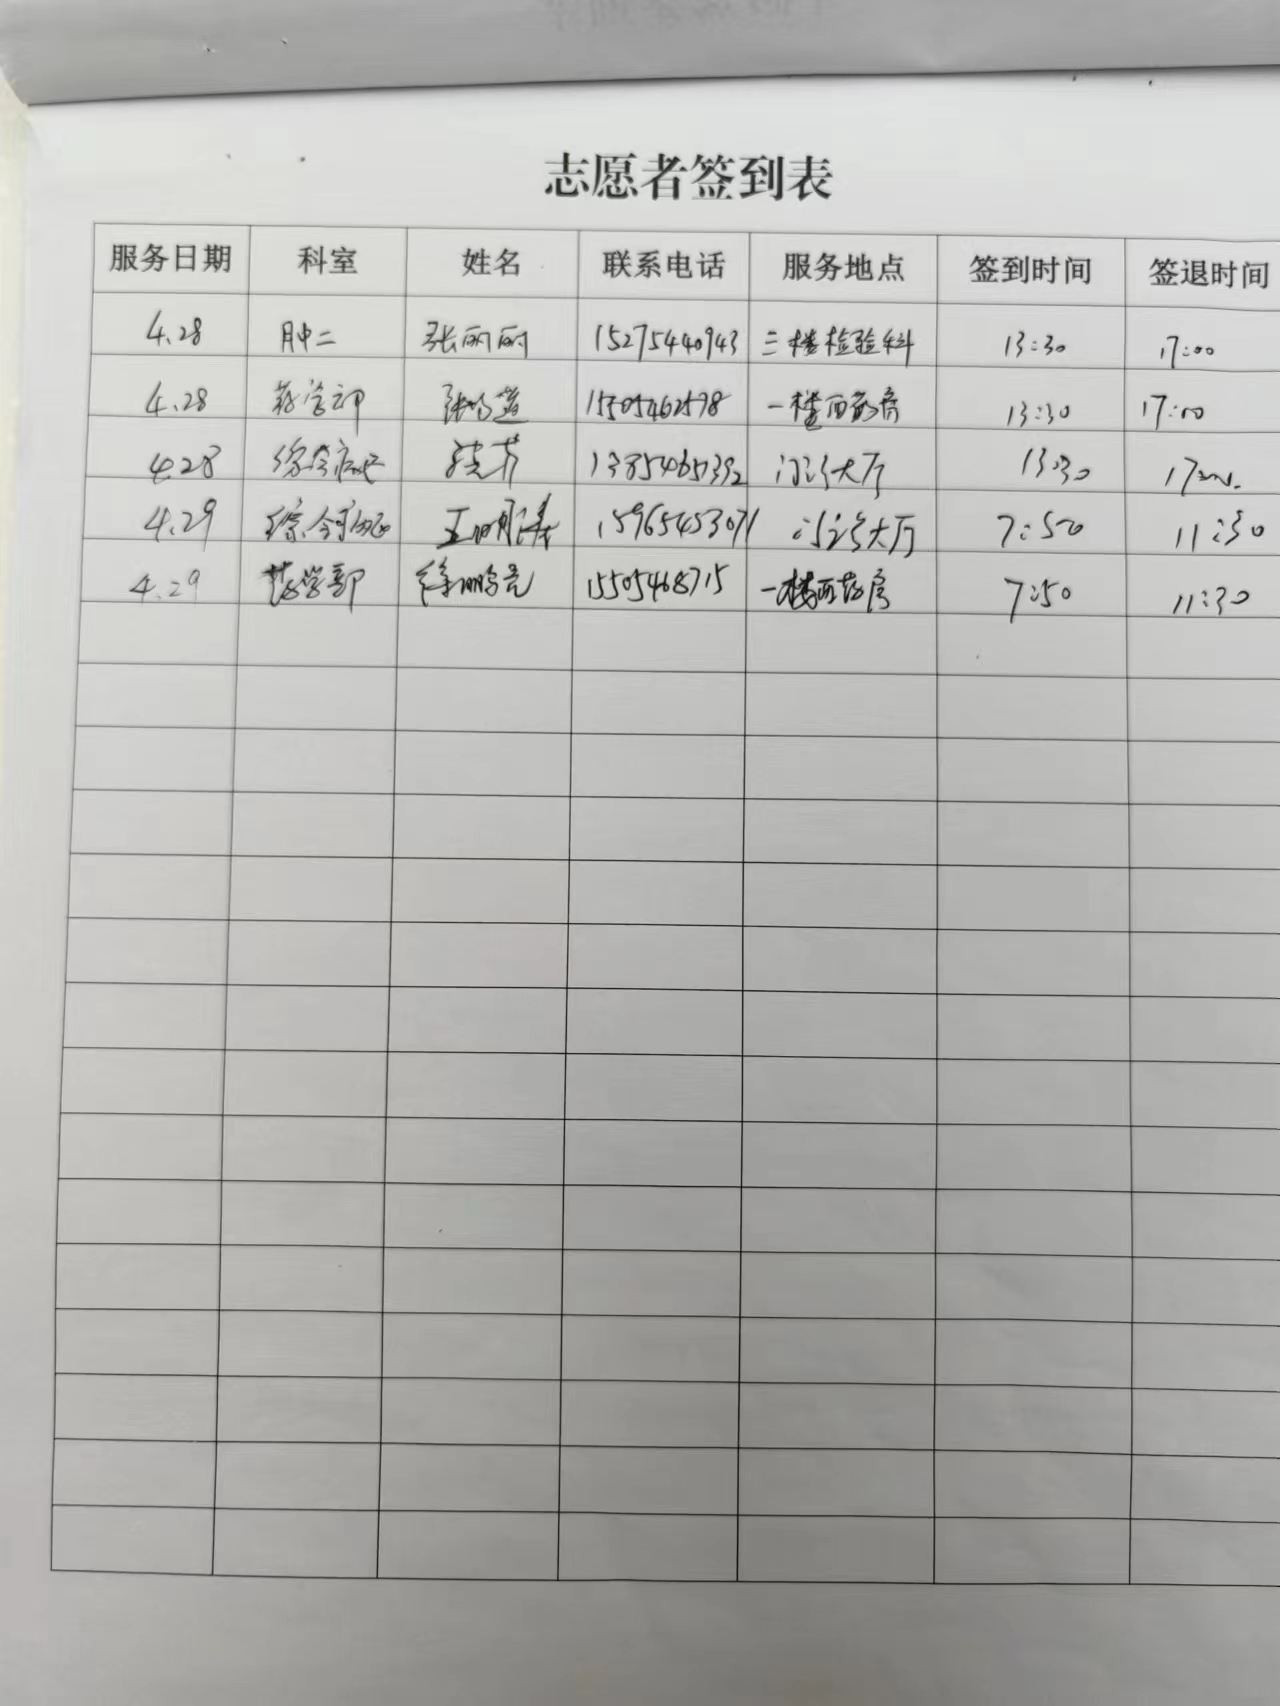 志愿者签到表
服务日期 科室 姓名 联系电话 服务地点 签到时间 签退时间
4.28 肿二 张丽丽 15275440943 三楼检验科 13:30 17:00
4.28 药学部 15505462598 一楼西药房 13:30 17:00
4.28 综合病区 门诊大厅 13:30
4.29 综合病区 王明涛 15965453071 门诊大厅 7:50 11:30
4.29 药学部 徐鹏亮 15505468715 一楼西药房 7:50 11:30